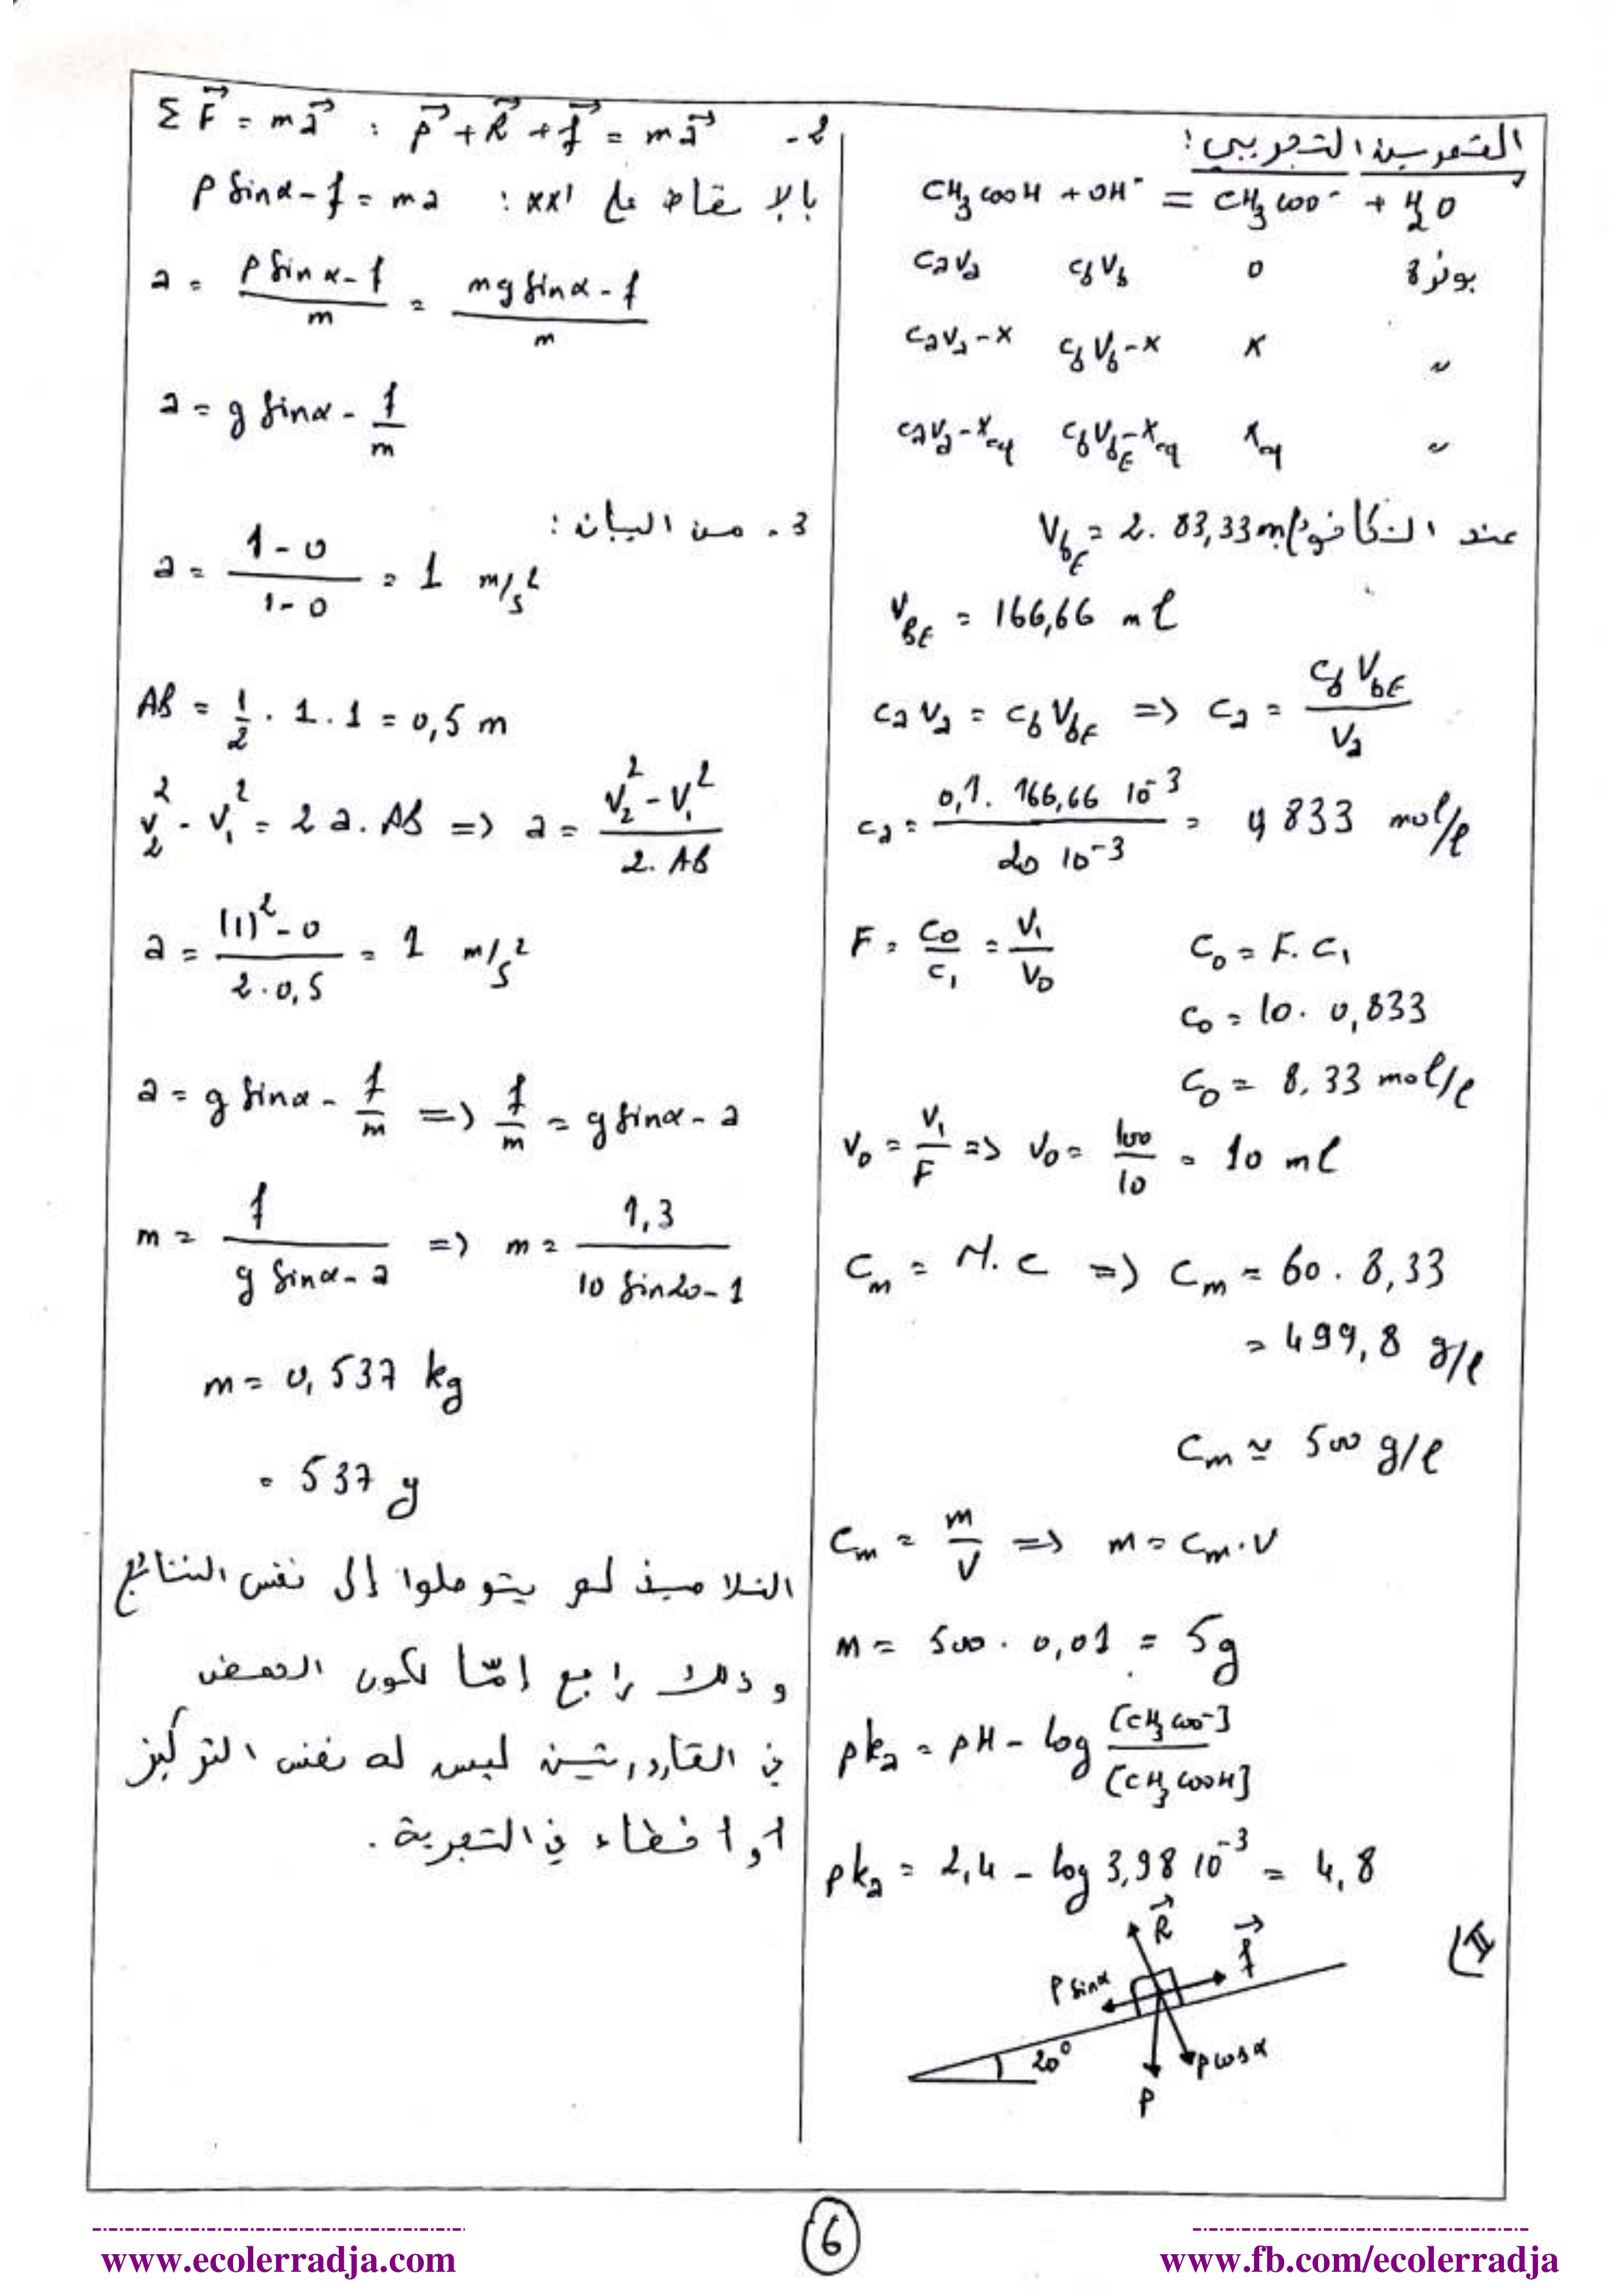 التمرين التجريبي :
CH₃COOH + OH⁻ = CH₃COO⁻ + H₂O
CaVa CbVb 0 بوفرة
CaVa-x CbVb-x x "
CaVa-xeq CbVbE-xeq xeq "
عند التكافؤ VbE = 2. 83,33 ml
VBE = 166,66 ml
CaVa = CbVbE => Ca = CbVbE / Va
Ca = 0,1. 166,66 10⁻³ / 20 10⁻³ = 0,833 mol/l
F = C0/C1 = V1/V0 C0 = F. C1
C0 = 10. 0,833
C0 = 8,33 mol/l
V0 = V1/F => V0 = 100/10 = 10 ml
Cm = M. C => Cm = 60. 8,33
= 499,8 g/l
Cm ≃ 500 g/l
Cm = m/V => m = Cm.V
m = 500. 0,01 = 5g
pka = pH - log [CH₃COO⁻]/[CH₃COOH]
pka = 2,4 - log 3,98 10⁻³ = 4,8
II)
R f
P sinα
20° P cosα
P
2 - ΣF = ma : P + R + f = ma
بالإسقاط على xx' : P sinα - f = ma
a = (P sinα - f)/m = (mg sinα - f)/m
a = g sinα - f/m
3. من البيان :
a = (1-0)/(1-0) = 1 m/s²
AB = 1/2 . 1. 1 = 0,5 m
V₂² - V₁² = 2 a. AB => a = (V₂² - V₁²)/(2. AB)
a = ((1)² - 0)/(2. 0,5) = 1 m/s²
a = g sinα - f/m => f/m = g sinα - a
m = f/(g sinα - a) => m = 1,3/(10 sin20 - 1)
m = 0,537 kg
= 537 g
التلاميذ لم يتوصلوا إلى نفس النتائج
وذلك راجع إمّا لكون الحمض
في القارورتين ليس له نفس التركيز
أو أخطاء في التجربة .
6
www.ecolerradja.com
www.fb.com/ecolerradja